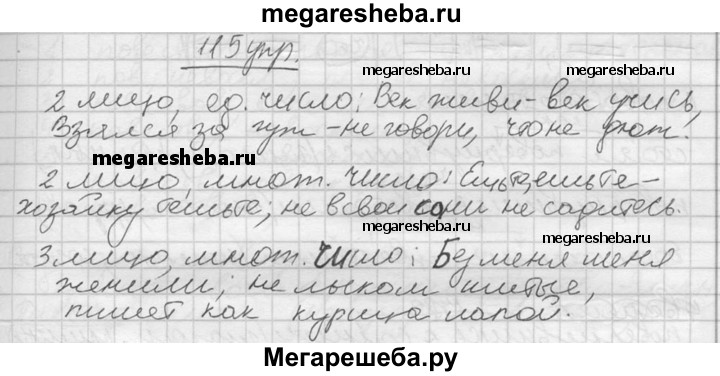 megaresheba.ru
115 упр.
megaresheba.ru megaresheba.ru
2 лицо, ед. число: Век живи - век учись,
Взялся за гуж - не говори, что не дюж.
megaresheba.ru megaresheba.ru
2 лицо, множ. число: Ешьте, ешьте -
хозяйку тешьте; не в свои сани не садитесь.
megaresheba.ru
3 лицо, множ. число: Без меня меня
женили; не лыком шитые,
пишет как курица лапой.
megaresheba.ru megaresheba.ru
Мегарешеба.ру